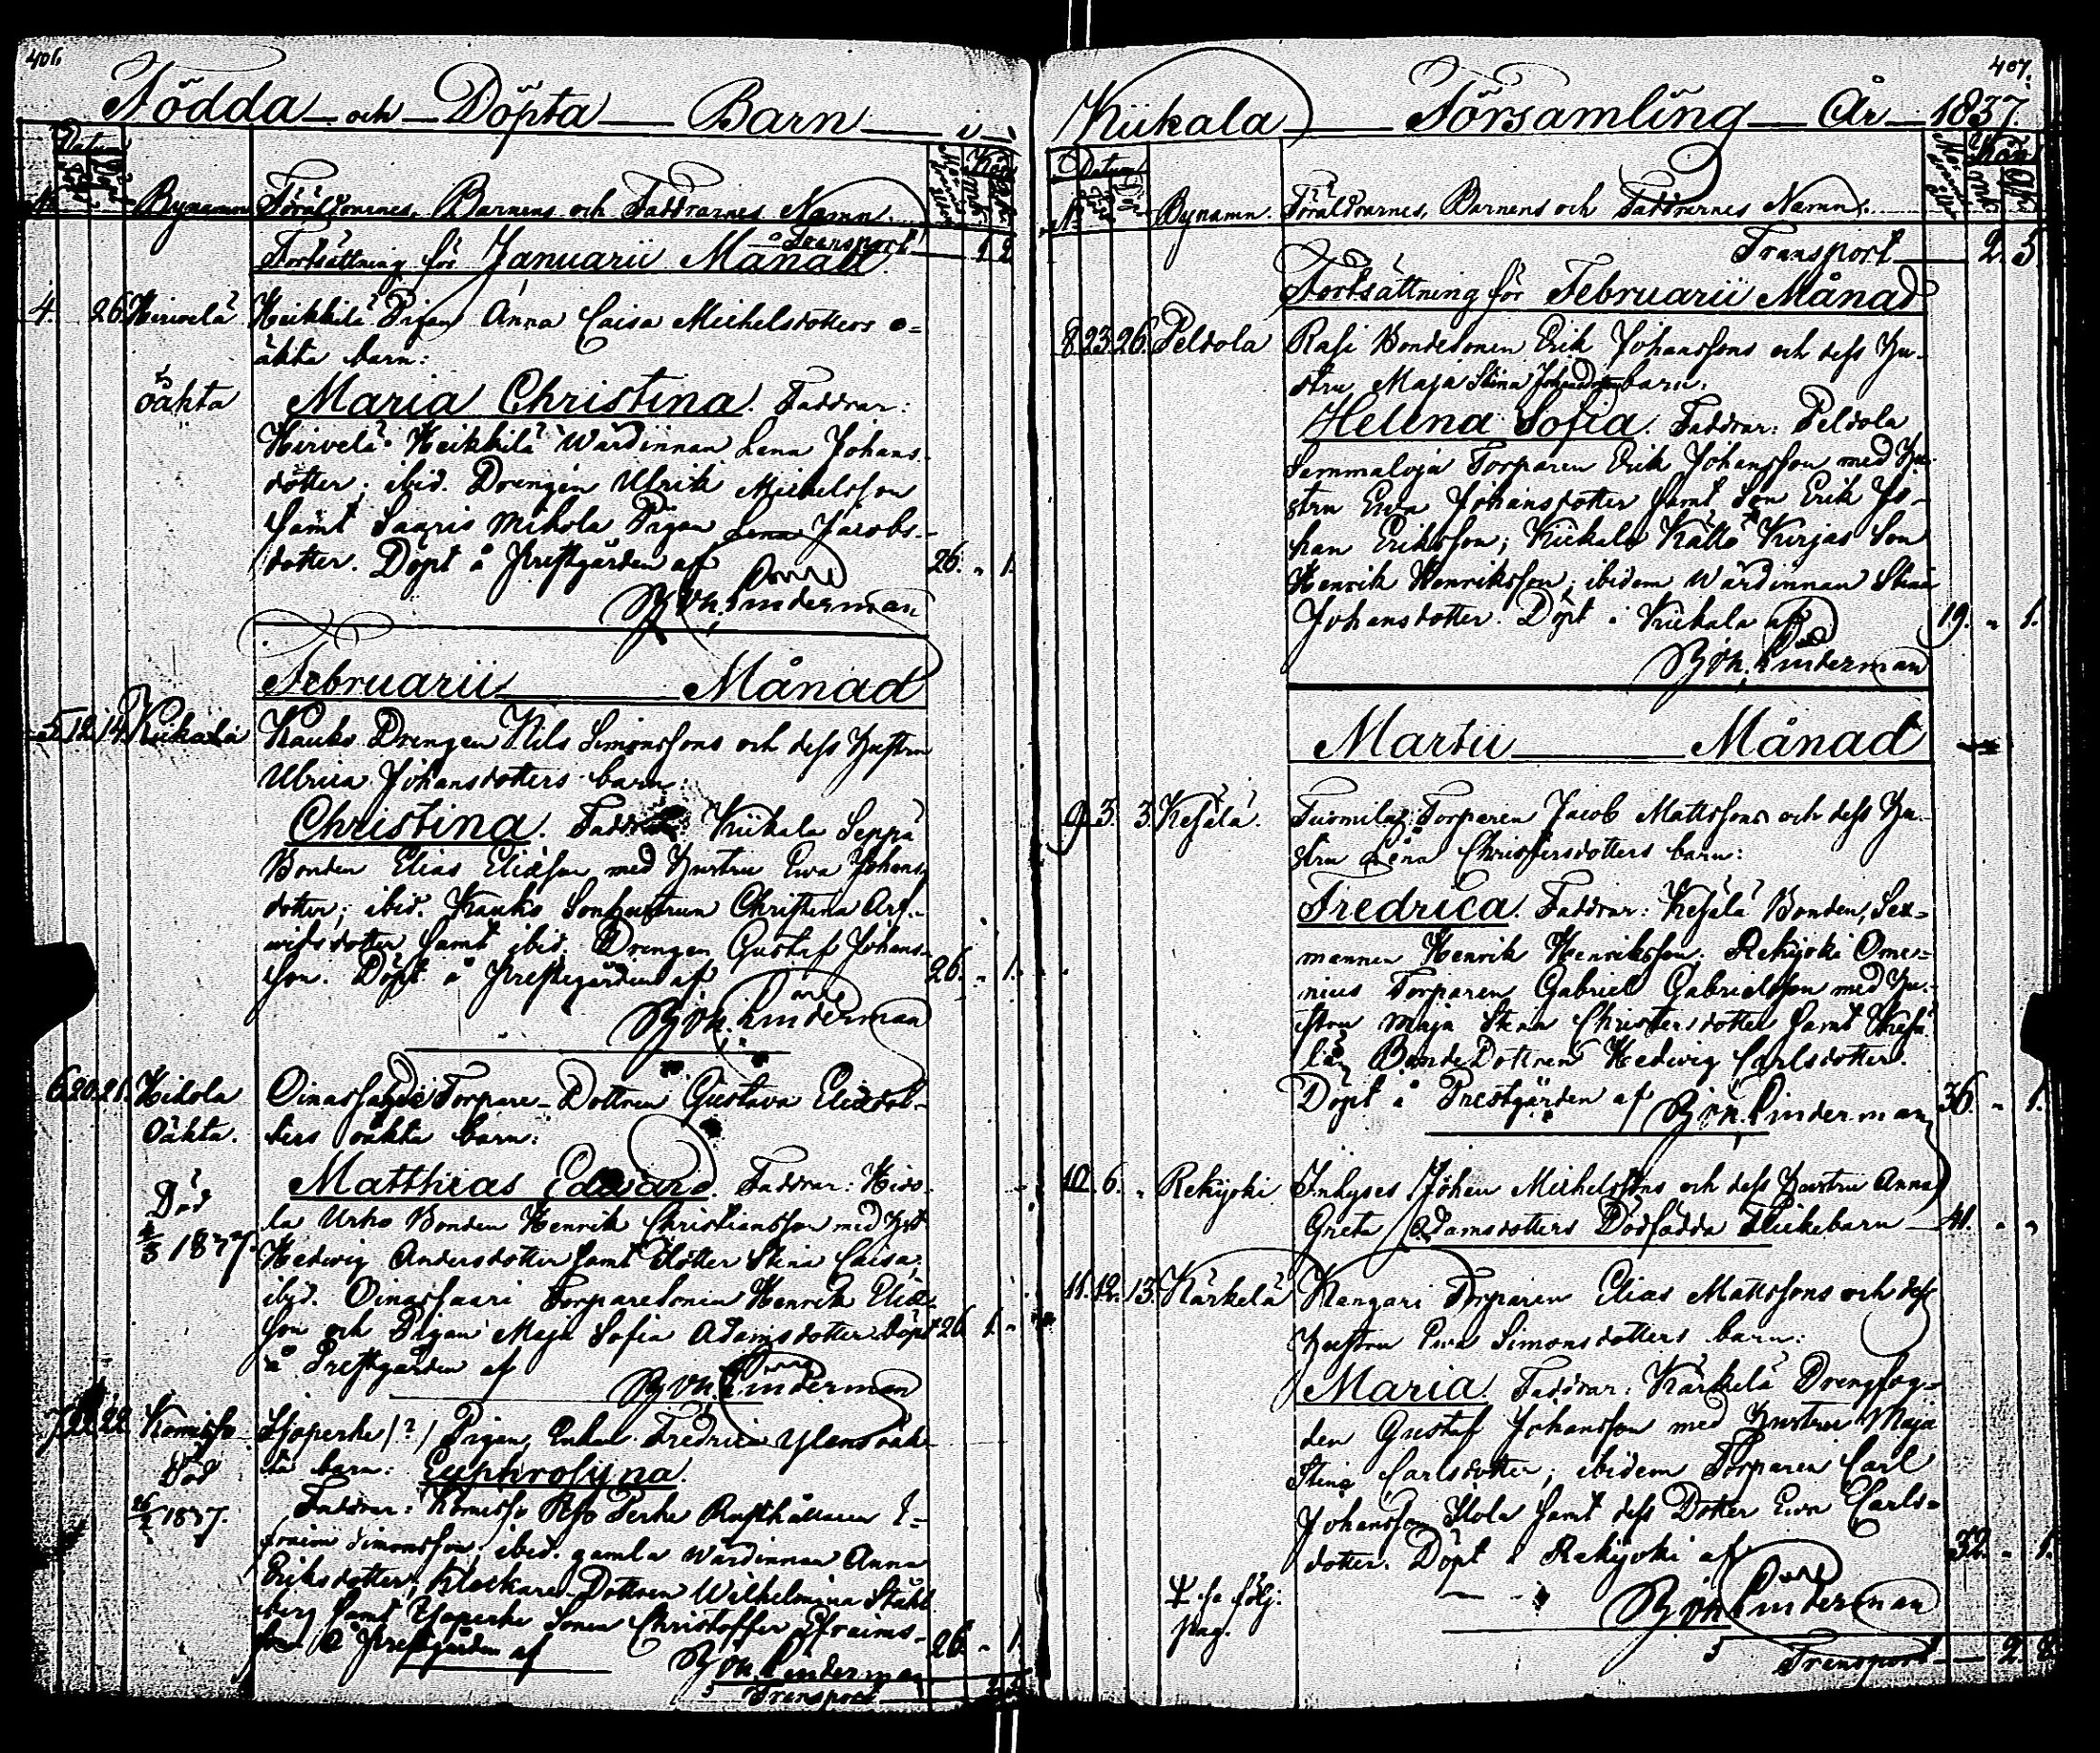 406.
Födda och Döpta Barn i
Datum
Född Döpt
N. Bynamn Föräldrarnes, Barnens och Faddrarnes Namn.
Transport 1 2
Fortsättning för Januarii Månad.
4. 26. Hirvelä Heikkilä Pigan Anna Caisa Michelsdotters o-
äkta barn:
oäkta Maria Christina. Faddrar:
Hirvelä Heikkilä Wärdinnan Lena Johans-
dotter; ibid. Drengen Ulrik Michelsson
samt Saaris Mikola Pigan Lena Jacobs-
dotter. Döpt å Prestgården af 26. " 1.
Joh. Linderman
Februarii Månad
5. 12. 14. Kiikala Kauko Drengen Nils Simonssons och dess Hustru
Ulrica Johansdotters barn:
Christina. Faddrar: Kiikala Seppä
Bonden Elias Eliasson med Hustru Ewa Johans-
dotter; ibid. Kauko Sonhustrun Christina Arf-
widsdotter samt ibid. Drengen Gustaf Johans-
son. Döpt å Prestgården af 26. " 1.
Joh. Linderman
6. 20. 21. Hidola Oinassaari Torpare-Dottren Gustava Eliædot-
Oäkta. ters oäkta barn:
Matthias Edvard. Faddrar: Hido-
Död la Urho Bonden Henrik Christiansson med Hust
1837. Hedwig Andersdotter samt Dotter Stina Caisa;
ibid. Oinassaari Torparesonen Henrik Elias-
son och Pigan Maja Sofia Adamsdotter. Döpt 26 1. "
å Prestgården af
Joh. Linderman
7. 22. 22. Komisso Isoperhe (?) Pigan, Enkan Fredrica Ylens oäk-
Död ta barn: Euphrosyna.
26/2 1837. Faddrar: Komisso Iso Perhe Rusthållaren E-
fraim Simonsson, ibid. gamla wärdinnan Anna
Eriksdotter, Klockare-Dottren Wilhelmina Stähl-
berg samt Isoperhe Sonen Christoffer Efraims-
son å Prestgården af 26. " 1.
Joh. Linderman
Transport 2. 5.
407.
Kiikala Församling År 1837.
Datum
N. Bynamn. Föräldrarnes, Barnens och Faddrarnes Namn.
Transport 2. 5.
Fortsättning för Februarii Månad
8. 23. 26. Peldola Rasi Bondesonen Erik Johanssons och dess Hu-
stru Maja Stina Johansdotters barn.
Helena Sofia. Faddrar: Peldola
Sammaloja Torparen Erik Johansson med Hu-
stru Ewa Johansdotter samt Son Erik Jo-
han Eriksson; Kiikala Källö Kirjas Son
Henrik Henriksson; ibidem Wärdinnan Stina
Johansdotter. Döpt i Kiikala af 19. " 1.
Joh. Linderman
Martii Månad
9. 3. 3. Kesälä. Tuomilas Torparen Jacob Mattssons och dess Hu-
stru Lena Christersdotters barn:
Fredrica. Faddrar: Kesälä Bonden, Sex-
mannen Henrik Henriksson; Rekijoki Ome-
nius Torparen Gabriel Gabrielsson med Hu-
stru Maja Stina Christersdotter samt Kesä-
lä Bonde Dottren Hedwig Carlsdotter.
Döpt å Prestgården af Joh. Linderman 36. " 1.
10. 6. " Rekijoki Inkyses Johan Michelssons och dess Hustru Anna
Greta Adamsdotters Dödfödda Flickebarn 41. " "
11. 12. 13. Kärkelä Kangari Torparen Elias Mattssons och dess
Hustru Ewa Simonsdotters barn:
Maria. Faddrar: Kärkelä Drengfog-
den Gustaf Johansson med Hustru Maja
Stina Carlsdotter; ibidem Torparen Carl
Johansson Stola samt dess Dotter Ewa Carls-
dotter. Döpt i Rekijoki af 32. " 1.
Joh. Linderman
se följ:
pag.
Transport 2. 8.